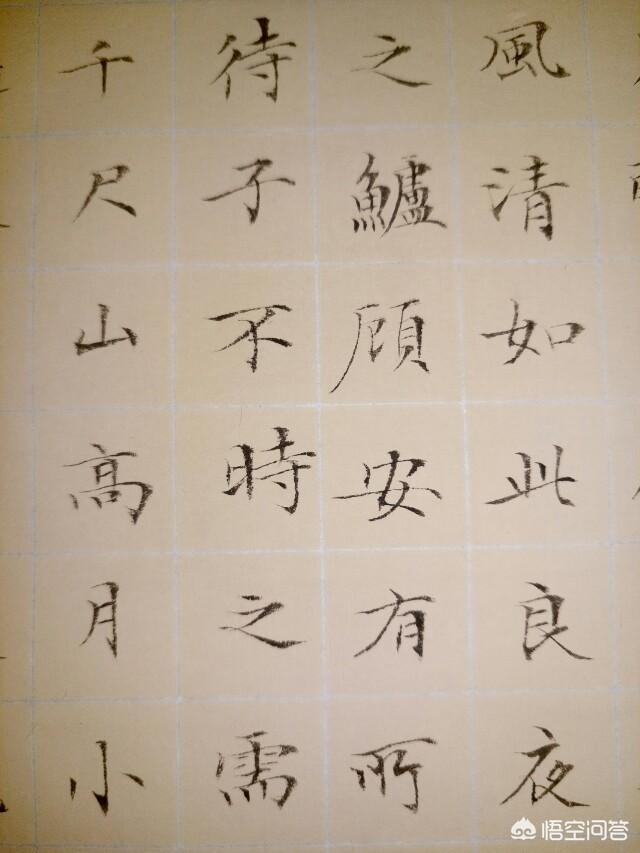 風清如此良夜
之鱸顧安有所
待子不時之需
千尺山高月小
悟空问答